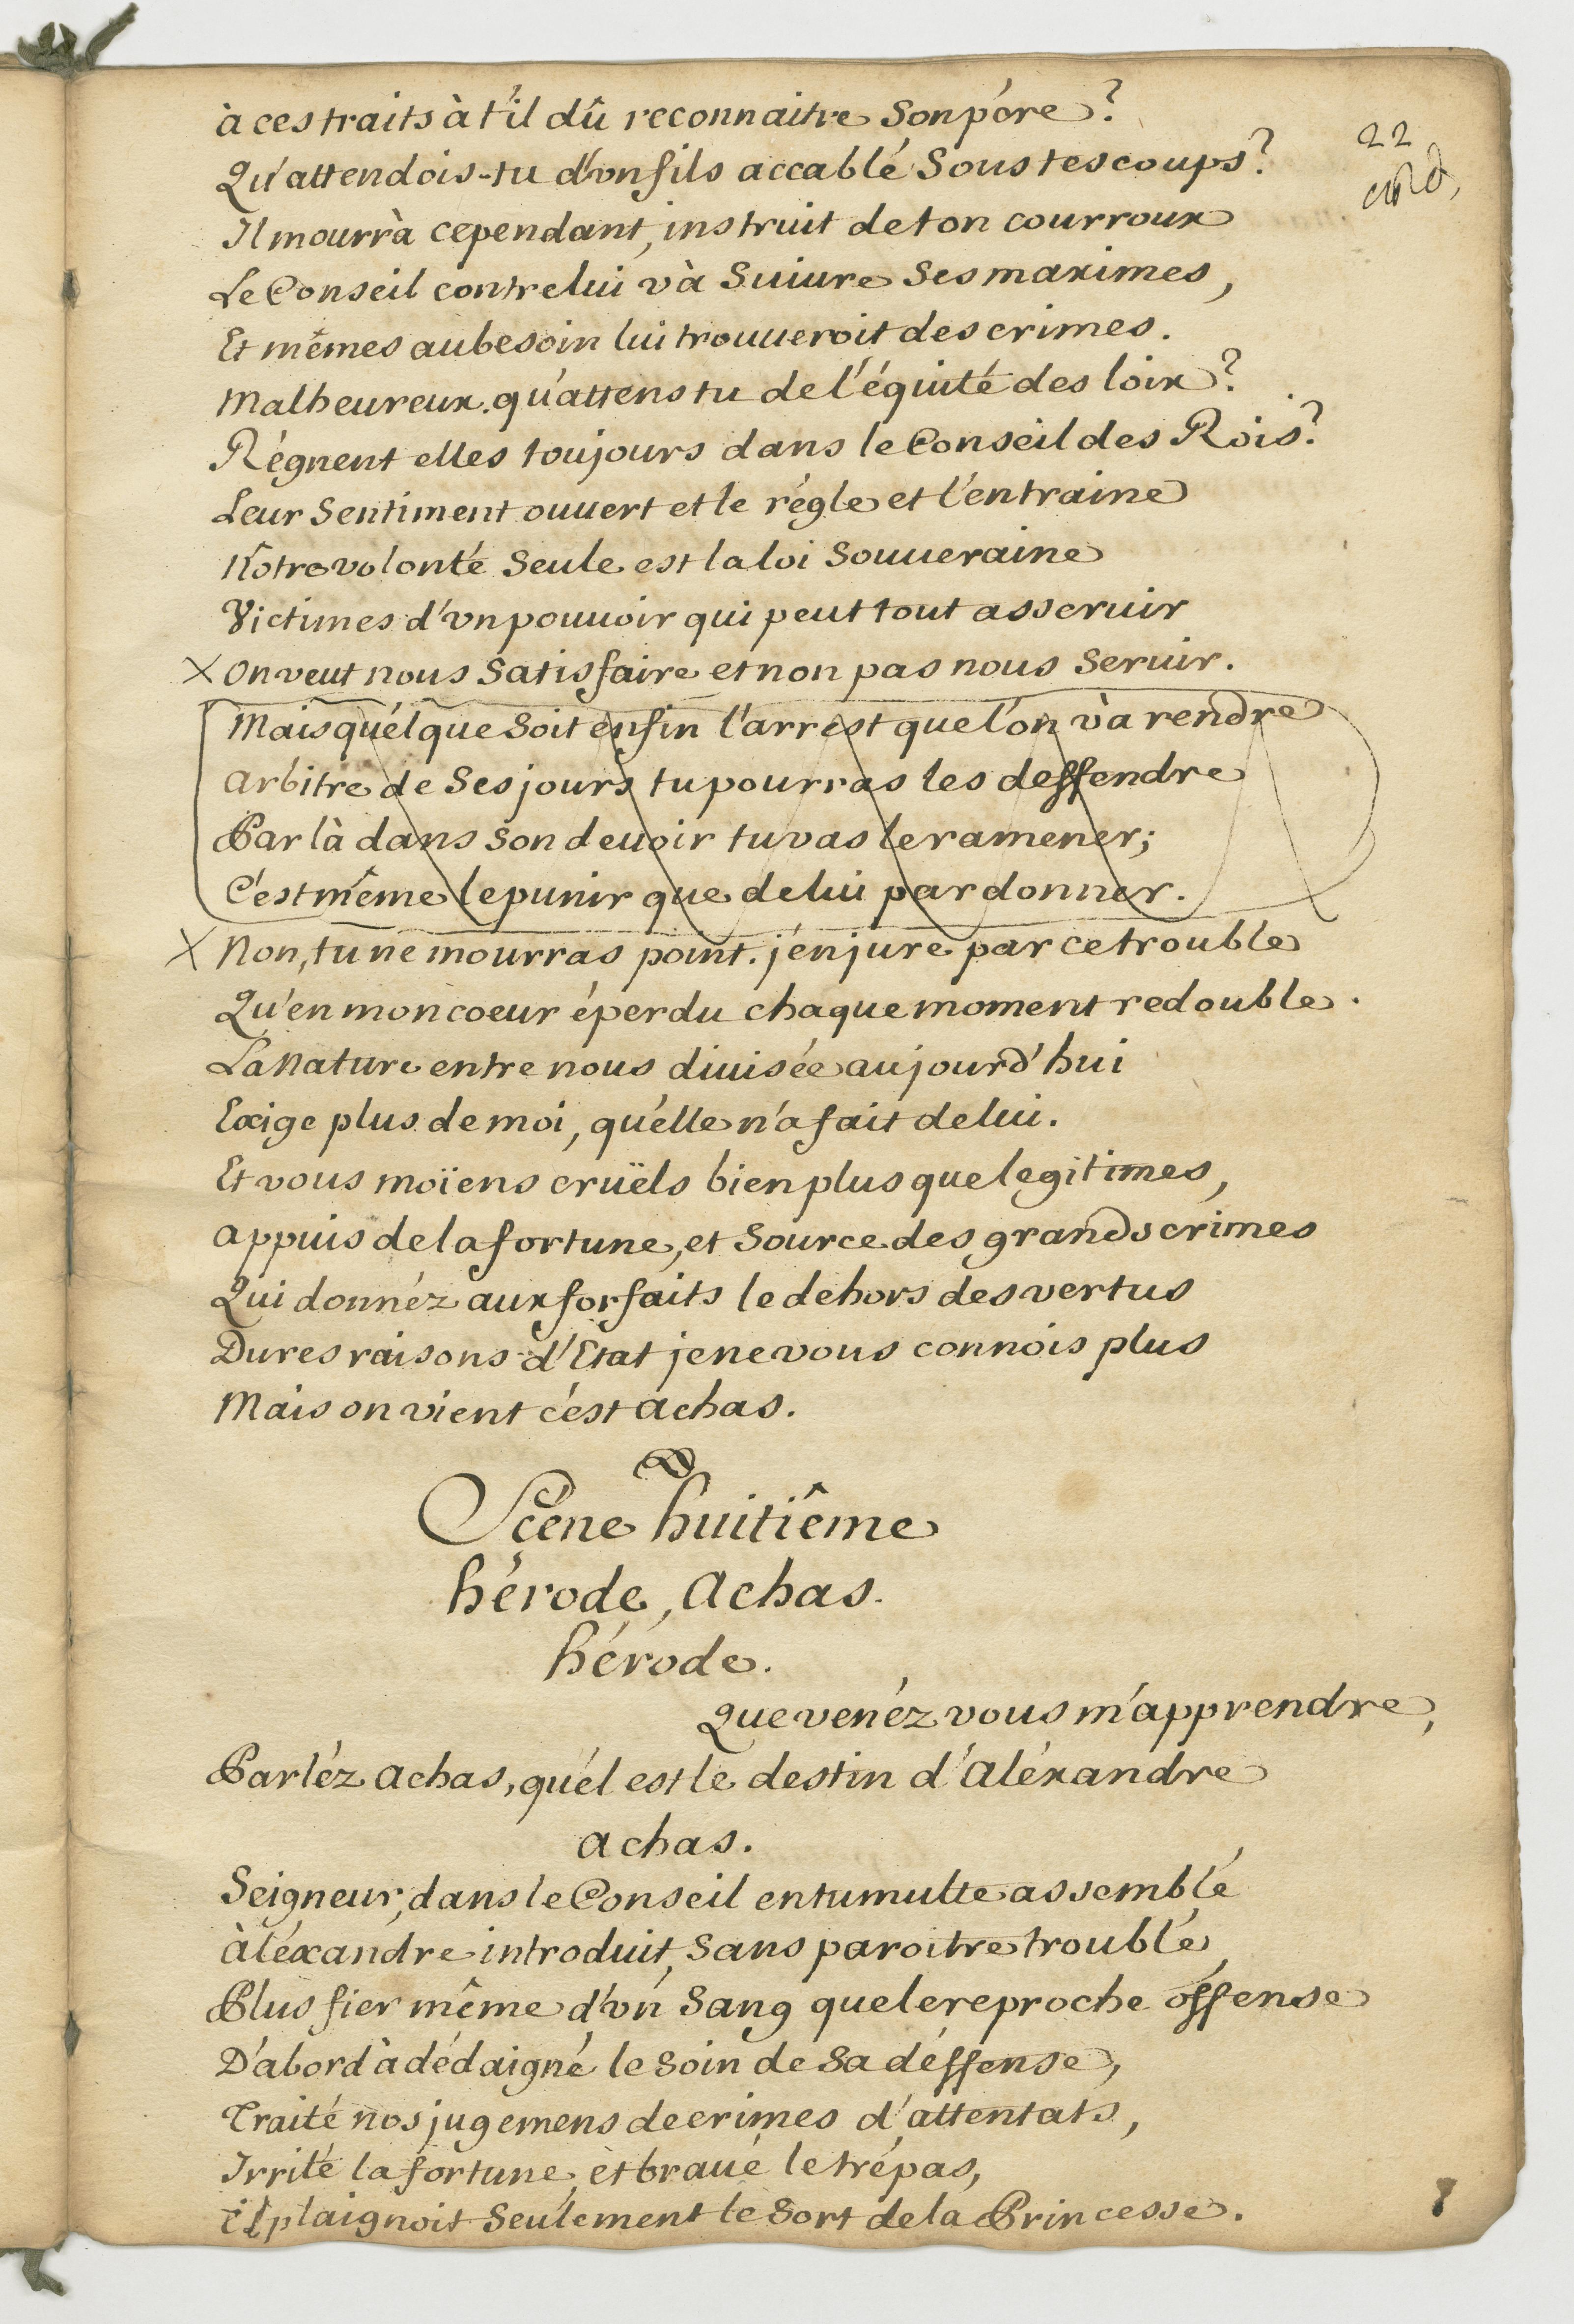 22
à ces traits à t'il dû reconnaitre Son pére ?
Qu'attendois-tu d'vn fils accablé Sous tes coups ?
Il mourrà cependant, instruit de ton courroux
Le Conseil contre lui và Suiure Ses maximes,
Et mêmes au besoin lui trouueroit des crimes.
Malheureux. qu'attens tu de l'équité des loix ?
Régnent elles toujours dans le Conseil des Rois ?
Leur Sentiment ouuert et le régle et l'entraine
Nôtre volonté Seule est la loi Souueraine
Victimes d'vn pouuoir qui peut tout asseruir
X On veut nous Satisfaire et non pas nous Seruir.
Mais quélque Soit enfin l'arrest que l'on và rendre
Arbitre de Ses jours tu pourras les deffendre
Par là dans Son deuoir tu vas le ramener;
C'est même le punir que de lui pardonner.
X Non, tu ne mourras point. j'en jure par ce trouble
Qu'en mon coeur éperdu chaque moment redouble.
La Nature entre nous diuisée aujourd'hui
Exige plus de moi, qu'elle n'a fait de lui.
Et vous moïens cruëls bien plus que legitimes,
Appuis de la fortune, et Source des grands crimes
Qui donnéz aux forfaits le dehors des vertus
Dures raisons d'Etat je ne vous connois plus
Mais on vient c'est Achas.
Scéne huitiême
hérode, Achas.
hérode.
Que venéz vous m'apprendre,
Parléz Achas, quél est le destin d'Aléxandre
Achas.
Seigneur, dans le Conseil en tumulte assemblé
àléxandre introduit, Sans paroitre troublé,
Plus fier même d'vn Sang que le reproche offense
D'abord à dédaigné le Soin de Sa déffense,
Traité nos jugemens de crimes d'attentats,
Irrité la fortune, et braué le trépas,
il plaignoit Seulement le Sort de la Princesse.